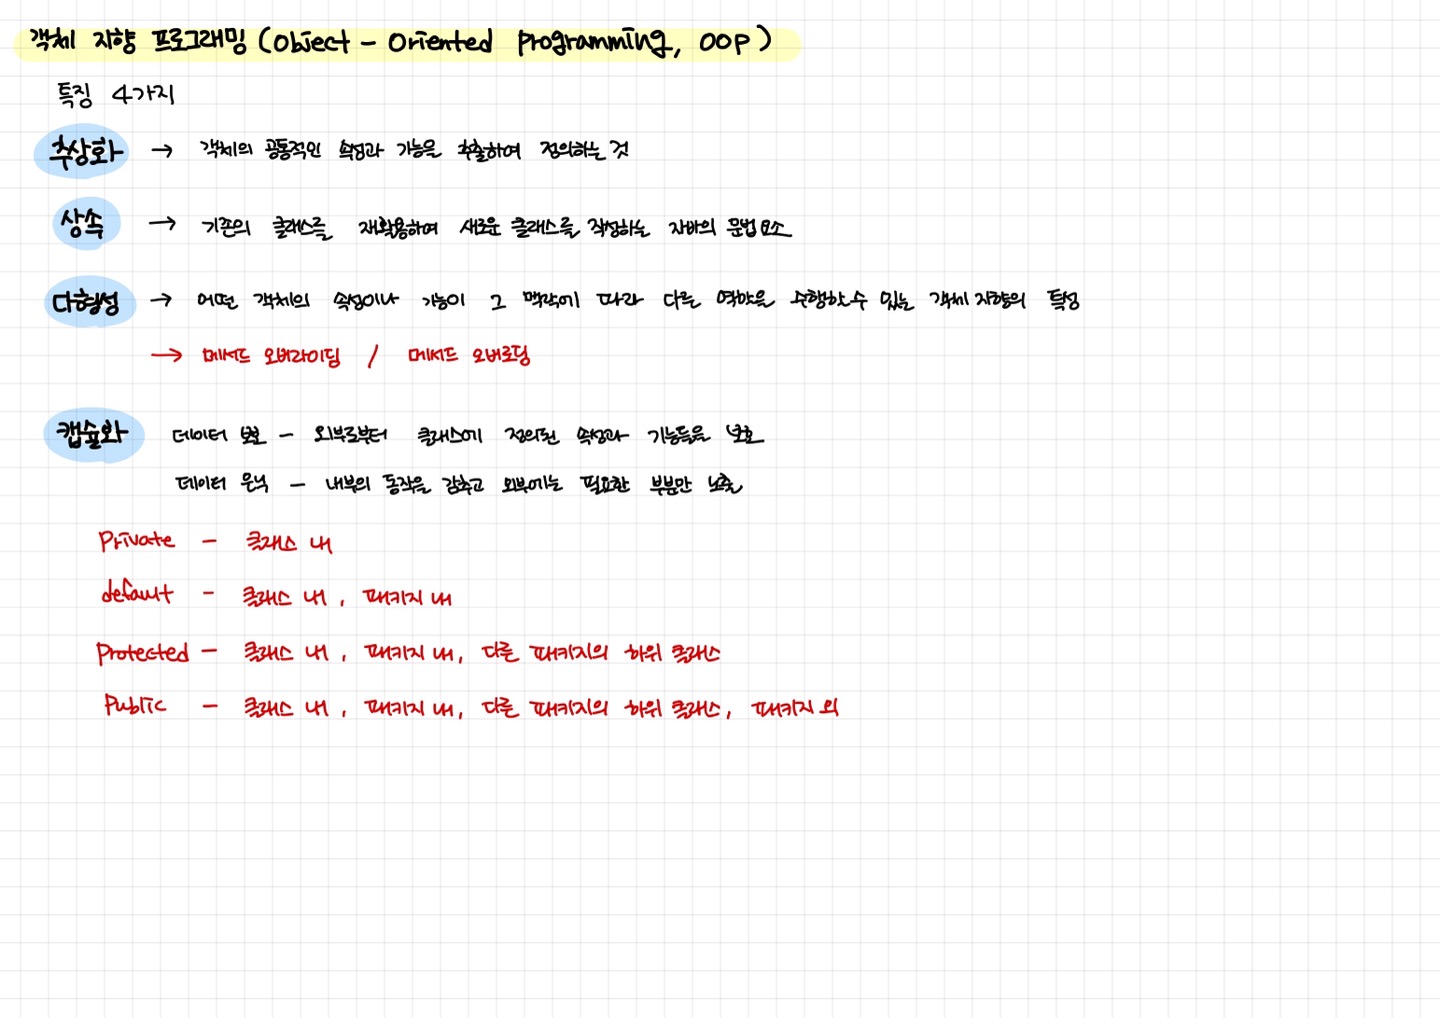 객체 지향 프로그래밍 (Object - Oriented Programming, OOP)
특징 4가지
추상화 → 객체의 공통적인 속성과 기능을 추출하여 정의하는 것
상속 → 기존의 클래스를 재활용하여 새로운 클래스를 작성하는 자바의 문법 요소
다형성 → 어떤 객체의 속성이나 기능이 그 맥락에 따라 다른 역할을 수행할 수 있는 객체 지향의 특성
→ 메서드 오버라이딩 / 메서드 오버로딩
캡슐화 데이터 보호 - 외부로부터 클래스에 정의된 속성과 기능들을 보호
데이터 은닉 - 내부의 동작을 감추고 외부에는 필요한 부분만 노출
Private - 클래스 내
default - 클래스 내, 패키지 내
Protected - 클래스 내, 패키지 내, 다른 패키지의 하위 클래스
Public - 클래스 내, 패키지 내, 다른 패키지의 하위 클래스, 패키지 외